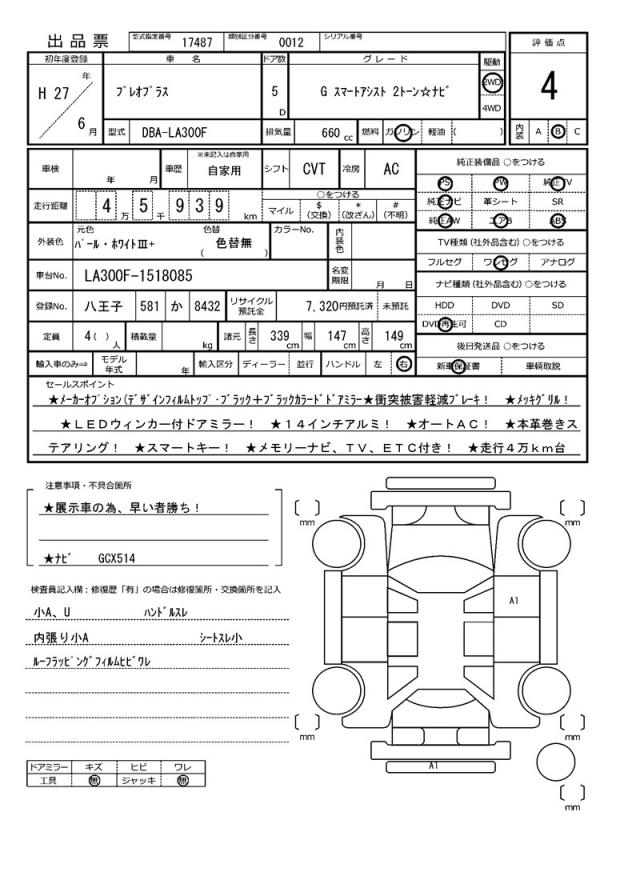 出品票 型式指定番号 17487 類別区分番号 0012 シリアル番号
評価点
4
内装 A B C
初年度登録 車名 ドア数 グレード 駆動
H 27 年 6 月
プレオプラス 5 D G スマートアシスト 2トーン☆ナビ 2WD 4WD
型式 DBA-LA300F 排気量 660 cc 燃料 ガソリン 軽油 ( )
車検 年 月 車歴 ※未記入は自家用 自家用 シフト CVT 冷房 AC
走行距離 4 万 5 千 9 3 9 km
○をつける
マイル $ (交換) * (改ざん) # (不明)
外装色 元色 パール・ホワイトⅢ+ 色替 ( 色替無 ) カラーNo. 内装色
車台No. LA300F-1518085 名変期限 月 日
登録No. 八王子 581 か 8432 リサイクル預託金 7,320円預託済 未預託
定員 4( ) 人 積載量 kg 諸元 長さ 339 cm 幅 147 cm 高さ 149 cm
輸入車のみ⇒ モデル年式 年 輸入区分 ディーラー 並行 ハンドル 左 右
純正装備品 ○をつける
PS PW 純正TV
純正ナビ 革シート SR
純正AW エアB ABS
TV種類 (社外品含む) ○をつける
フルセグ ワンセグ アナログ
ナビ種類 (社外品含む) ○をつける
HDD DVD SD
DVD再生可 CD
後日発送品 ○をつける
新車保証書 車輌取説
セールスポイント
★メーカーオプション(デザインフィルムトップ・ブラック+ブラックカラードドアミラー★衝突被害軽減ブレーキ! ★メッキグリル!
★LEDウィンカー付ドアミラー! ★14インチアルミ! ★オートAC! ★本革巻きス
テアリング! ★スマートキー! ★メモリーナビ、TV、ETC付き! ★走行4万km台
注意事項・不具合箇所
★展示車の為、早い者勝ち!
★ナビ GCX514
検査員記入欄:修復歴「有」の場合は修復箇所・交換箇所を記入
小A、U ハンドルスレ
内張り小A シートスレ小
ルーフラッピングフィルムヒビワレ
ドアミラー キズ ヒビ ワレ
工具 無 ジャッキ 無
〔 〕 mm
〔 〕 mm
A1
〔 〕 mm
〔 〕 mm
A1
〔 〕 mm